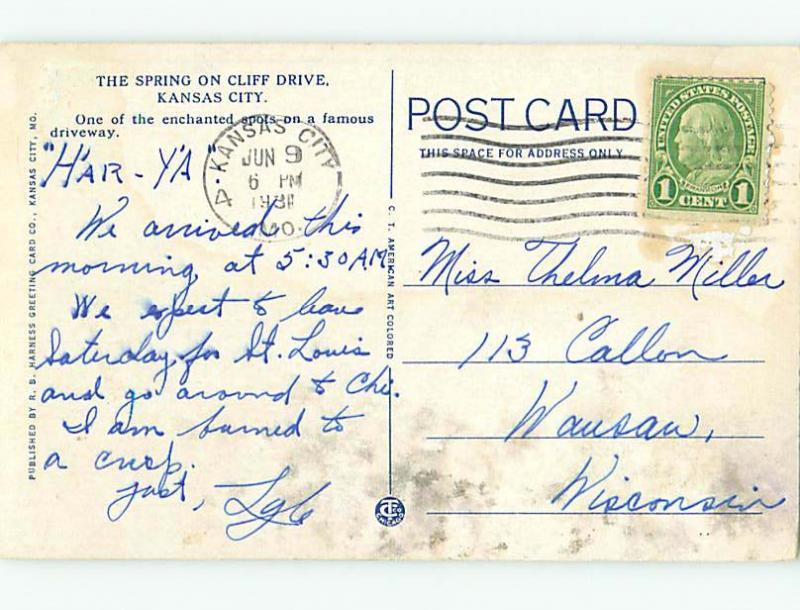 THE SPRING ON CLIFF DRIVE,
KANSAS CITY.
One of the enchanted spots on a famous
driveway.
"HAR - YA"
We arrived this
morning at 5:30 AM
We expect to leave
Saturday for St. Louis
and go around to Chi.
I am burned to
a crisp.
Just,
PUBLISHED BY R. B. HARNESS GREETING CARD CO., KANSAS CITY, MO.
C. T. AMERICAN ART COLORED
KANSAS CITY
JUN 9
6 PM
1931
MO.
4
POST CARD
THIS SPACE FOR ADDRESS ONLY
UNITED STATES POSTAGE
FRANKLIN
1 CENT 1
Miss Thelma Miller
113 Callon
Wausau,
Wisconsin
CT CO
CHICAGO